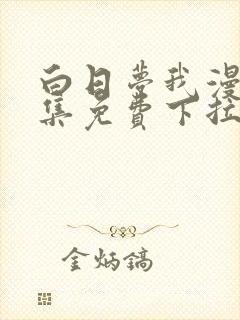 白日梦我漫
集免费下拉
金炳镐